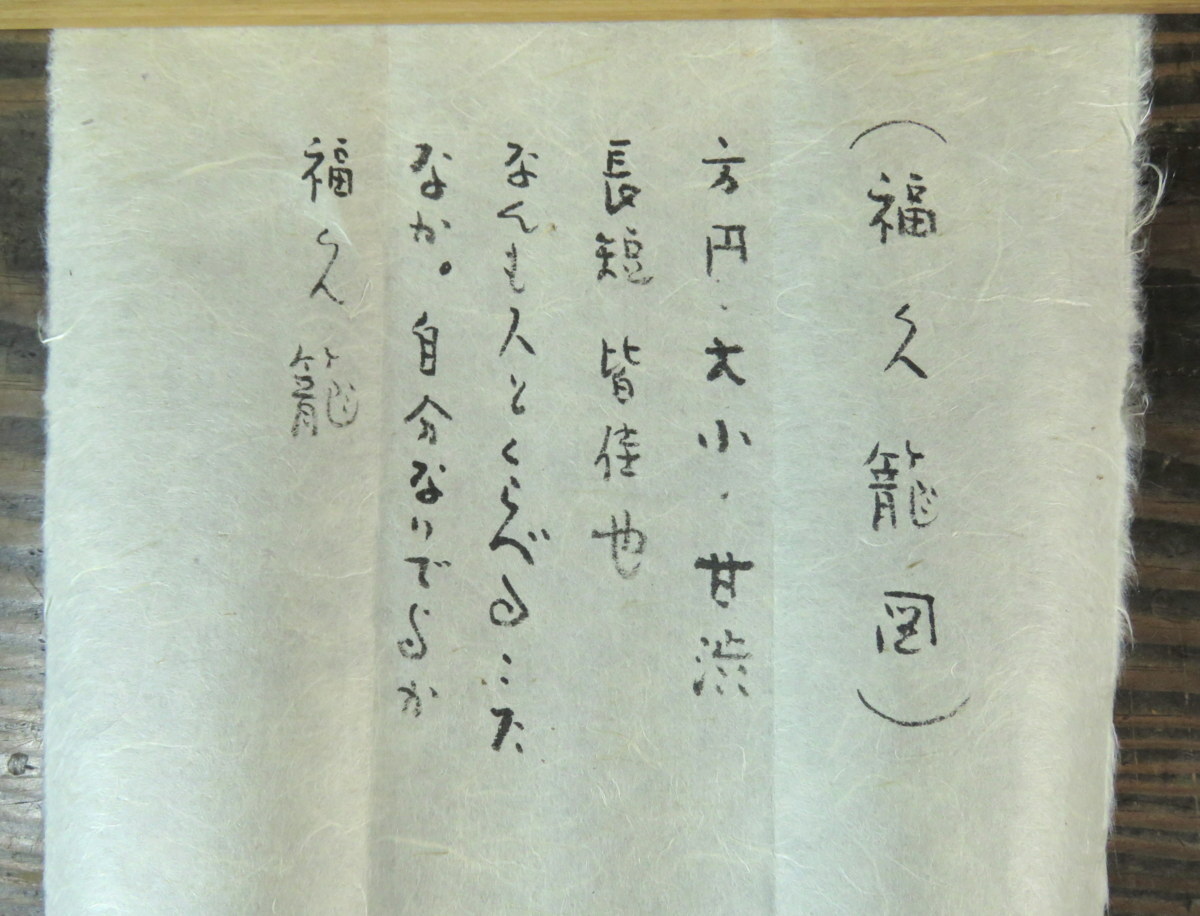 （福久籠図）
方円・大小・甘渋
長短 皆佳也
なんも人とくらべるこた
なか。自分なりでよか
福久籠